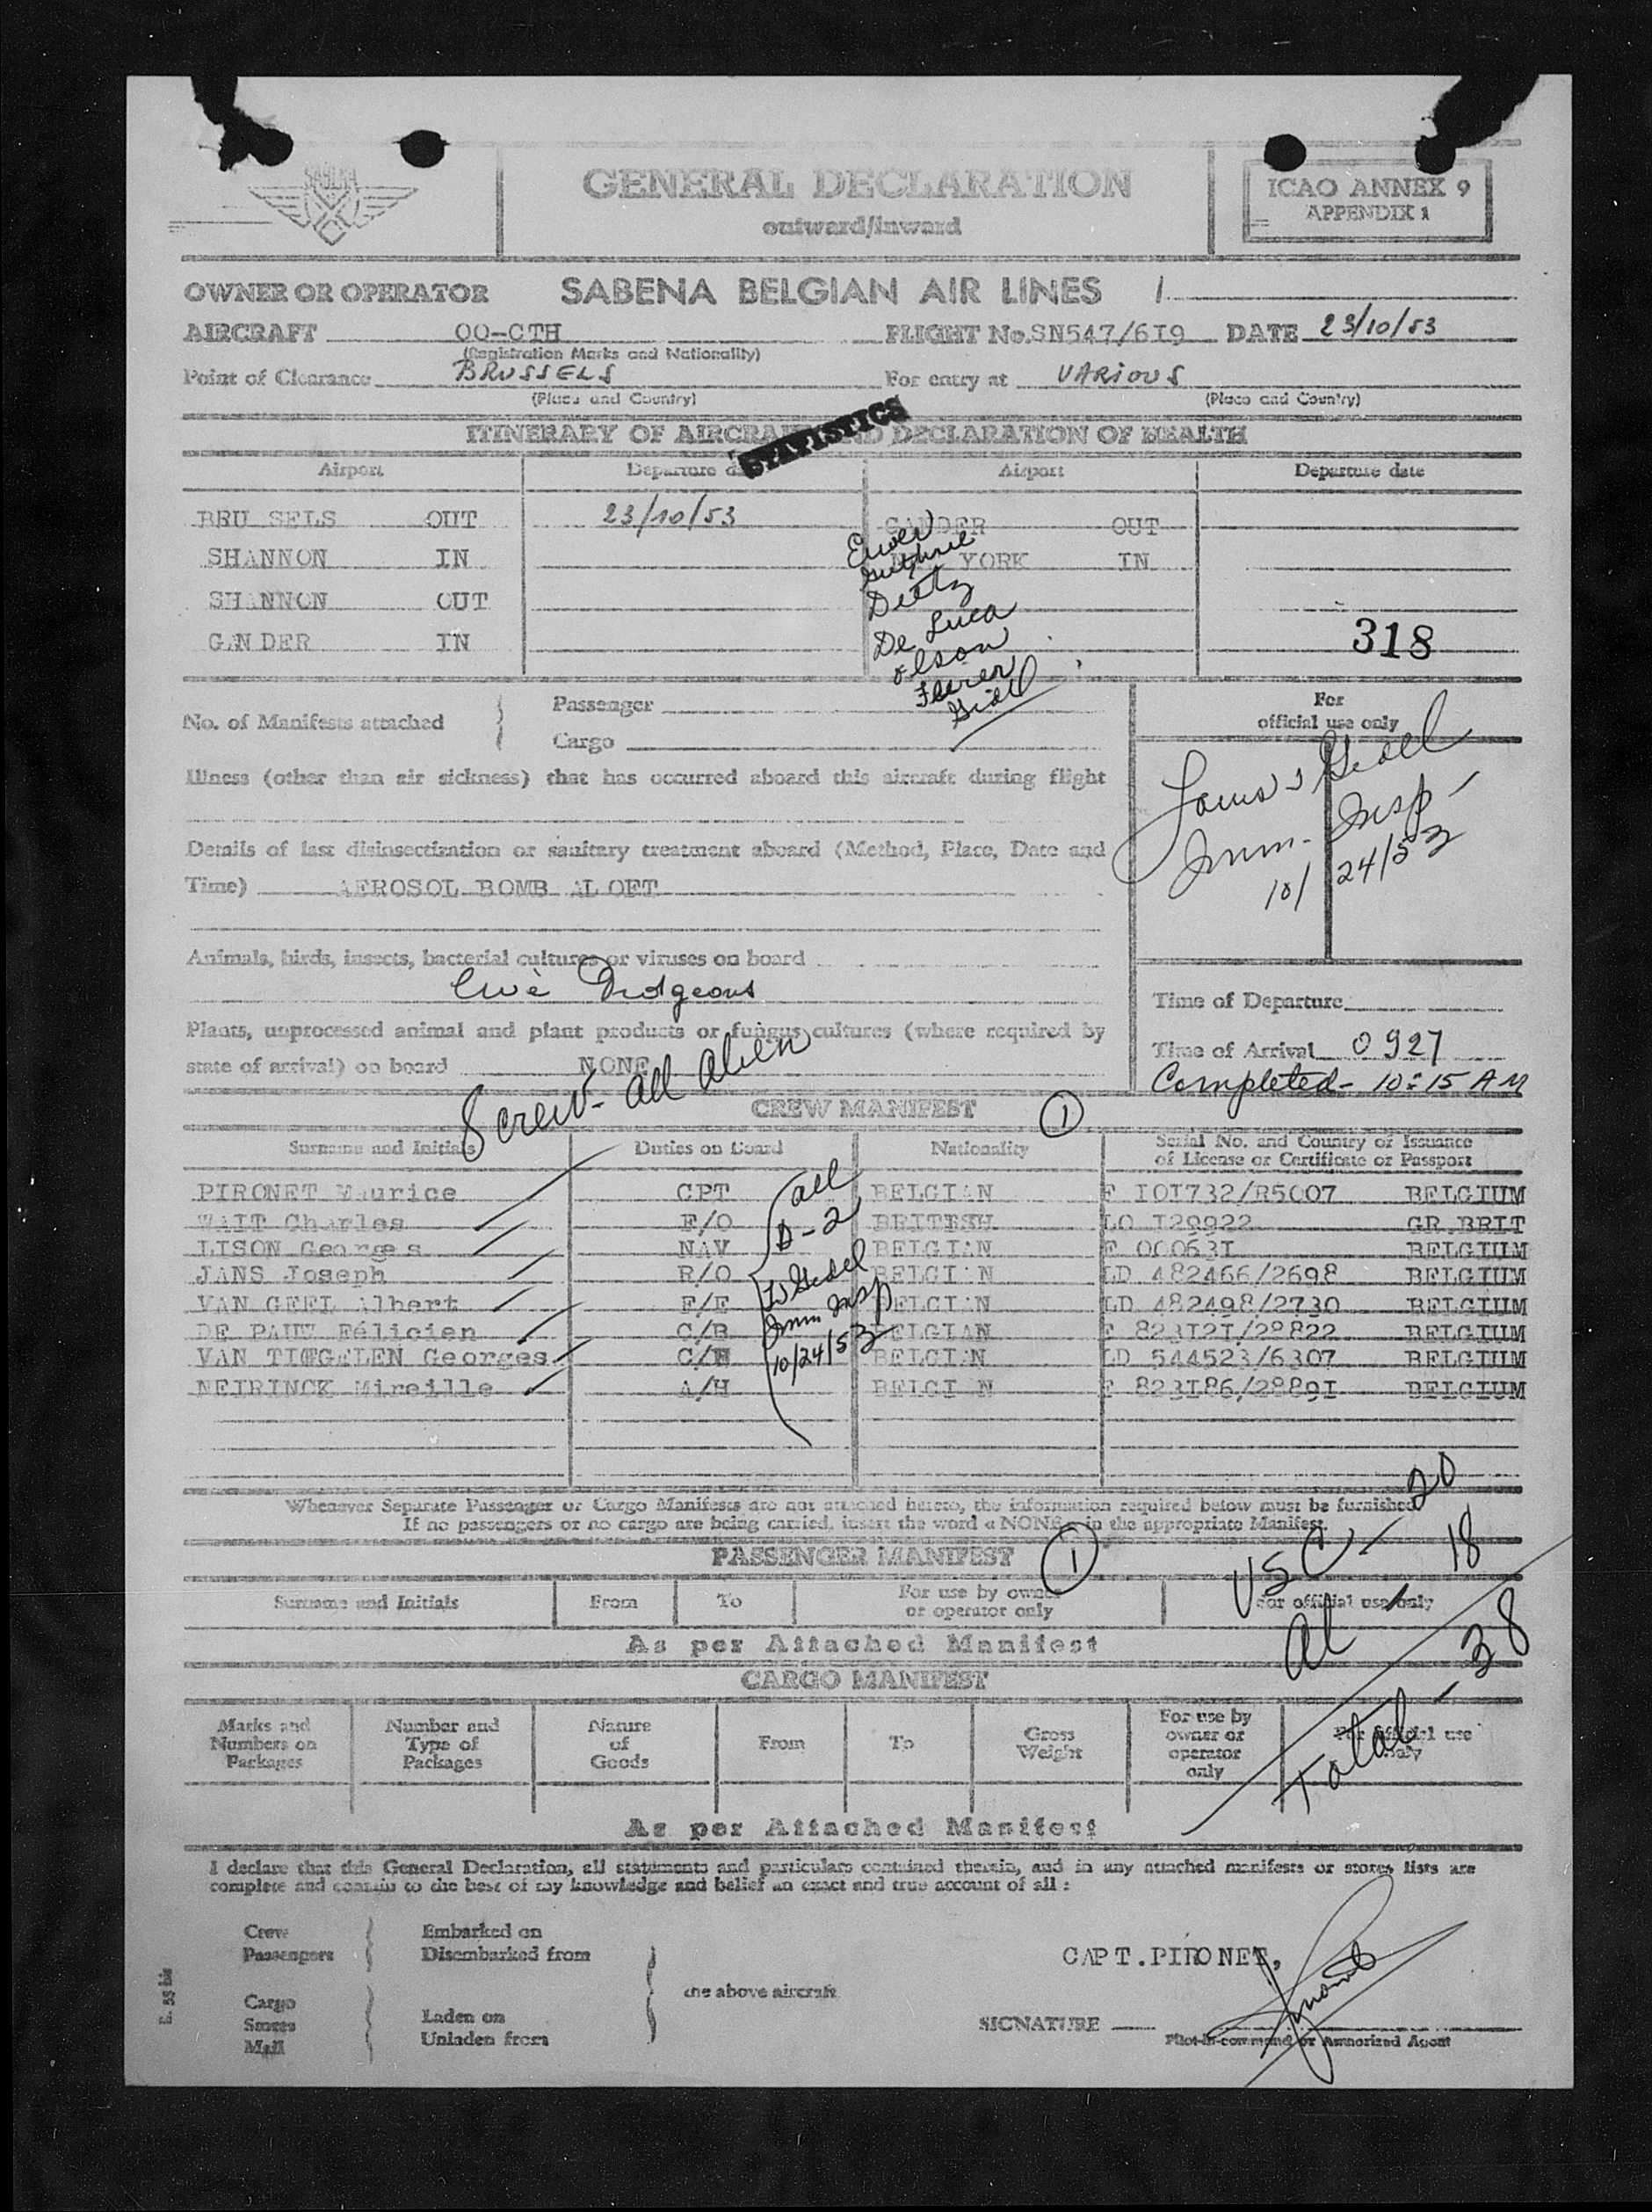 SABENA
GENERAL DECLARATION
outward/inward
ICAO ANNEX 9
APPENDIX 1
OWNER OR OPERATOR SABENA BELGIAN AIR LINES 1
AIRCRAFT OO-CTH FLIGHT No. SN547/6I9 DATE 23/10/53
(Registration Marks and Nationality)
Point of Clearance BRUSSELS For entry at VARIOUS
(Place and Country) (Place and Country)
STATISTICS
ITINERARY OF AIRCRAFT AND DECLARATION OF HEALTH
Airport Departure date Airport Departure date
BRU SELS OUT 23/10/53 GANDER OUT
SHANNON IN YORK IN
SHANNON OUT
GANDER IN
Guthrie
Deitz
De Luca
Olson
318
No. of Manifests attached
Passenger
Cargo
For
official use only
Illness (other than air sickness) that has occurred aboard this aircraft during flight
Gidel
Imm. Insp -
10/24/53
Details of last disinsectization or sanitary treatment aboard (Method, Place, Date and
Time) AEROSOL BOMB ALOFT
Animals, birds, insects, bacterial cultures or viruses on board
Live
Plants, unprocessed animal and plant products or fungus cultures (where required by
state of arrival) on board NONE
Time of Departure
Time of Arrival 0927
Completed - 10:15 AM
8 crew - all alien
CREW MANIFEST 1
Surname and Initials Duties on Board Nationality Serial No. and Country of Issuance
of License or Certificate or Passport
PIRONET Maurice CPT BELGIAN F IOI732/R5007 BELGIUM
WAIT Charles F/O BRITISH LO I29922 GR.BRIT
LISON Georges NAV BELGIAN F 00063I BELGIUM
JANS Joseph R/O BELGIAN LD 482466/2698 BELGIUM
VAN GEEL Albert F/E BELGIAN LD 482498/2730 BELGIUM
DE PAUW Félicien C/B BELGIAN F 823I2I/28822 BELGIUM
VAN TIGGELEN Georges C/H BELGIAN LD 544523/6307 BELGIUM
NEIRINCK Mireille A/H BELGI N F 823I86/2889I BELGIUM
all
D-2
Gidel
Imm Insp
10/24/53
Whenever Separate Passenger or Cargo Manifests are not attached hereto, the information required below must be furnished.
If no passengers or no cargo are being carried, insert the word « NONE » in the appropriate Manifest.
USC - 20
Al - 18
Total - 38
PASSENGER MANIFEST 1
Surname and Initials From To For use by owner
or operator only For official use only
As per Attached Manifest
CARGO MANIFEST
Marks and
Numbers on
Packages
Number and
Type of
Packages
Nature
of
Goods
From
To
Gross
Weight
For use by
owner or
operator
only
For official use
only
As per Attached Manifest
I declare that this General Declaration, all statements and particulars contained therein, and in any attached manifests or stores lists are
complete and contain to the best of my knowledge and belief an exact and true account of all :
Crew
Passengers
Embarked on
Disembarked from
Cargo
Stores
Mail
Laden on
Unladen from
the above aircraft
CAPT.PIRONET,
SIGNATURE
Pilot-in-command or Authorized Agent
E. 53 bis